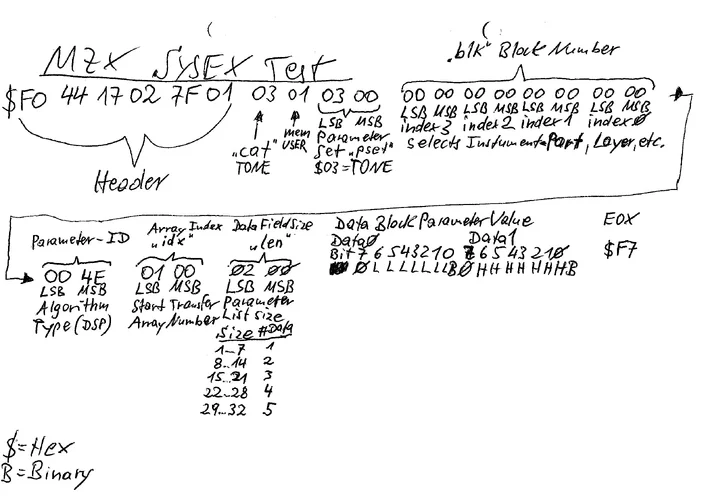 MZX SYSEX Test
"blk" Block Number
$F0 44 17 02 7F 01 03 01 03 00 00 00 00 00 00 00 00 00
LSB MSB LSB MSB LSB MSB LSB MSB LSB MSB
Header
"cat" TONE
mem USER
Parameter
Set "pset"
$03=TONE
index3 index2 index1 index0
selects Instument=Part, Layer, etc.
Parameter-ID
00 4E
LSB MSB
Algorithm
Type (DSP)
Array Index
"idx"
01 00
LSB MSB
Start Transfer
Array Number
Data Field Size
"len"
02 00
LSB MSB
Parameter
List size
Size #Data
1-7 1
8..14 2
15..21 3
22..28 4
29..32 5
Data Block Parameter Value
Data0 Data1
Bit 7 6 5 4 3 2 1 0 7 6 5 4 3 2 1 0
0LLLLLLLB 0HHHHHHHB
EOX
$F7
$=Hex
B=Binary